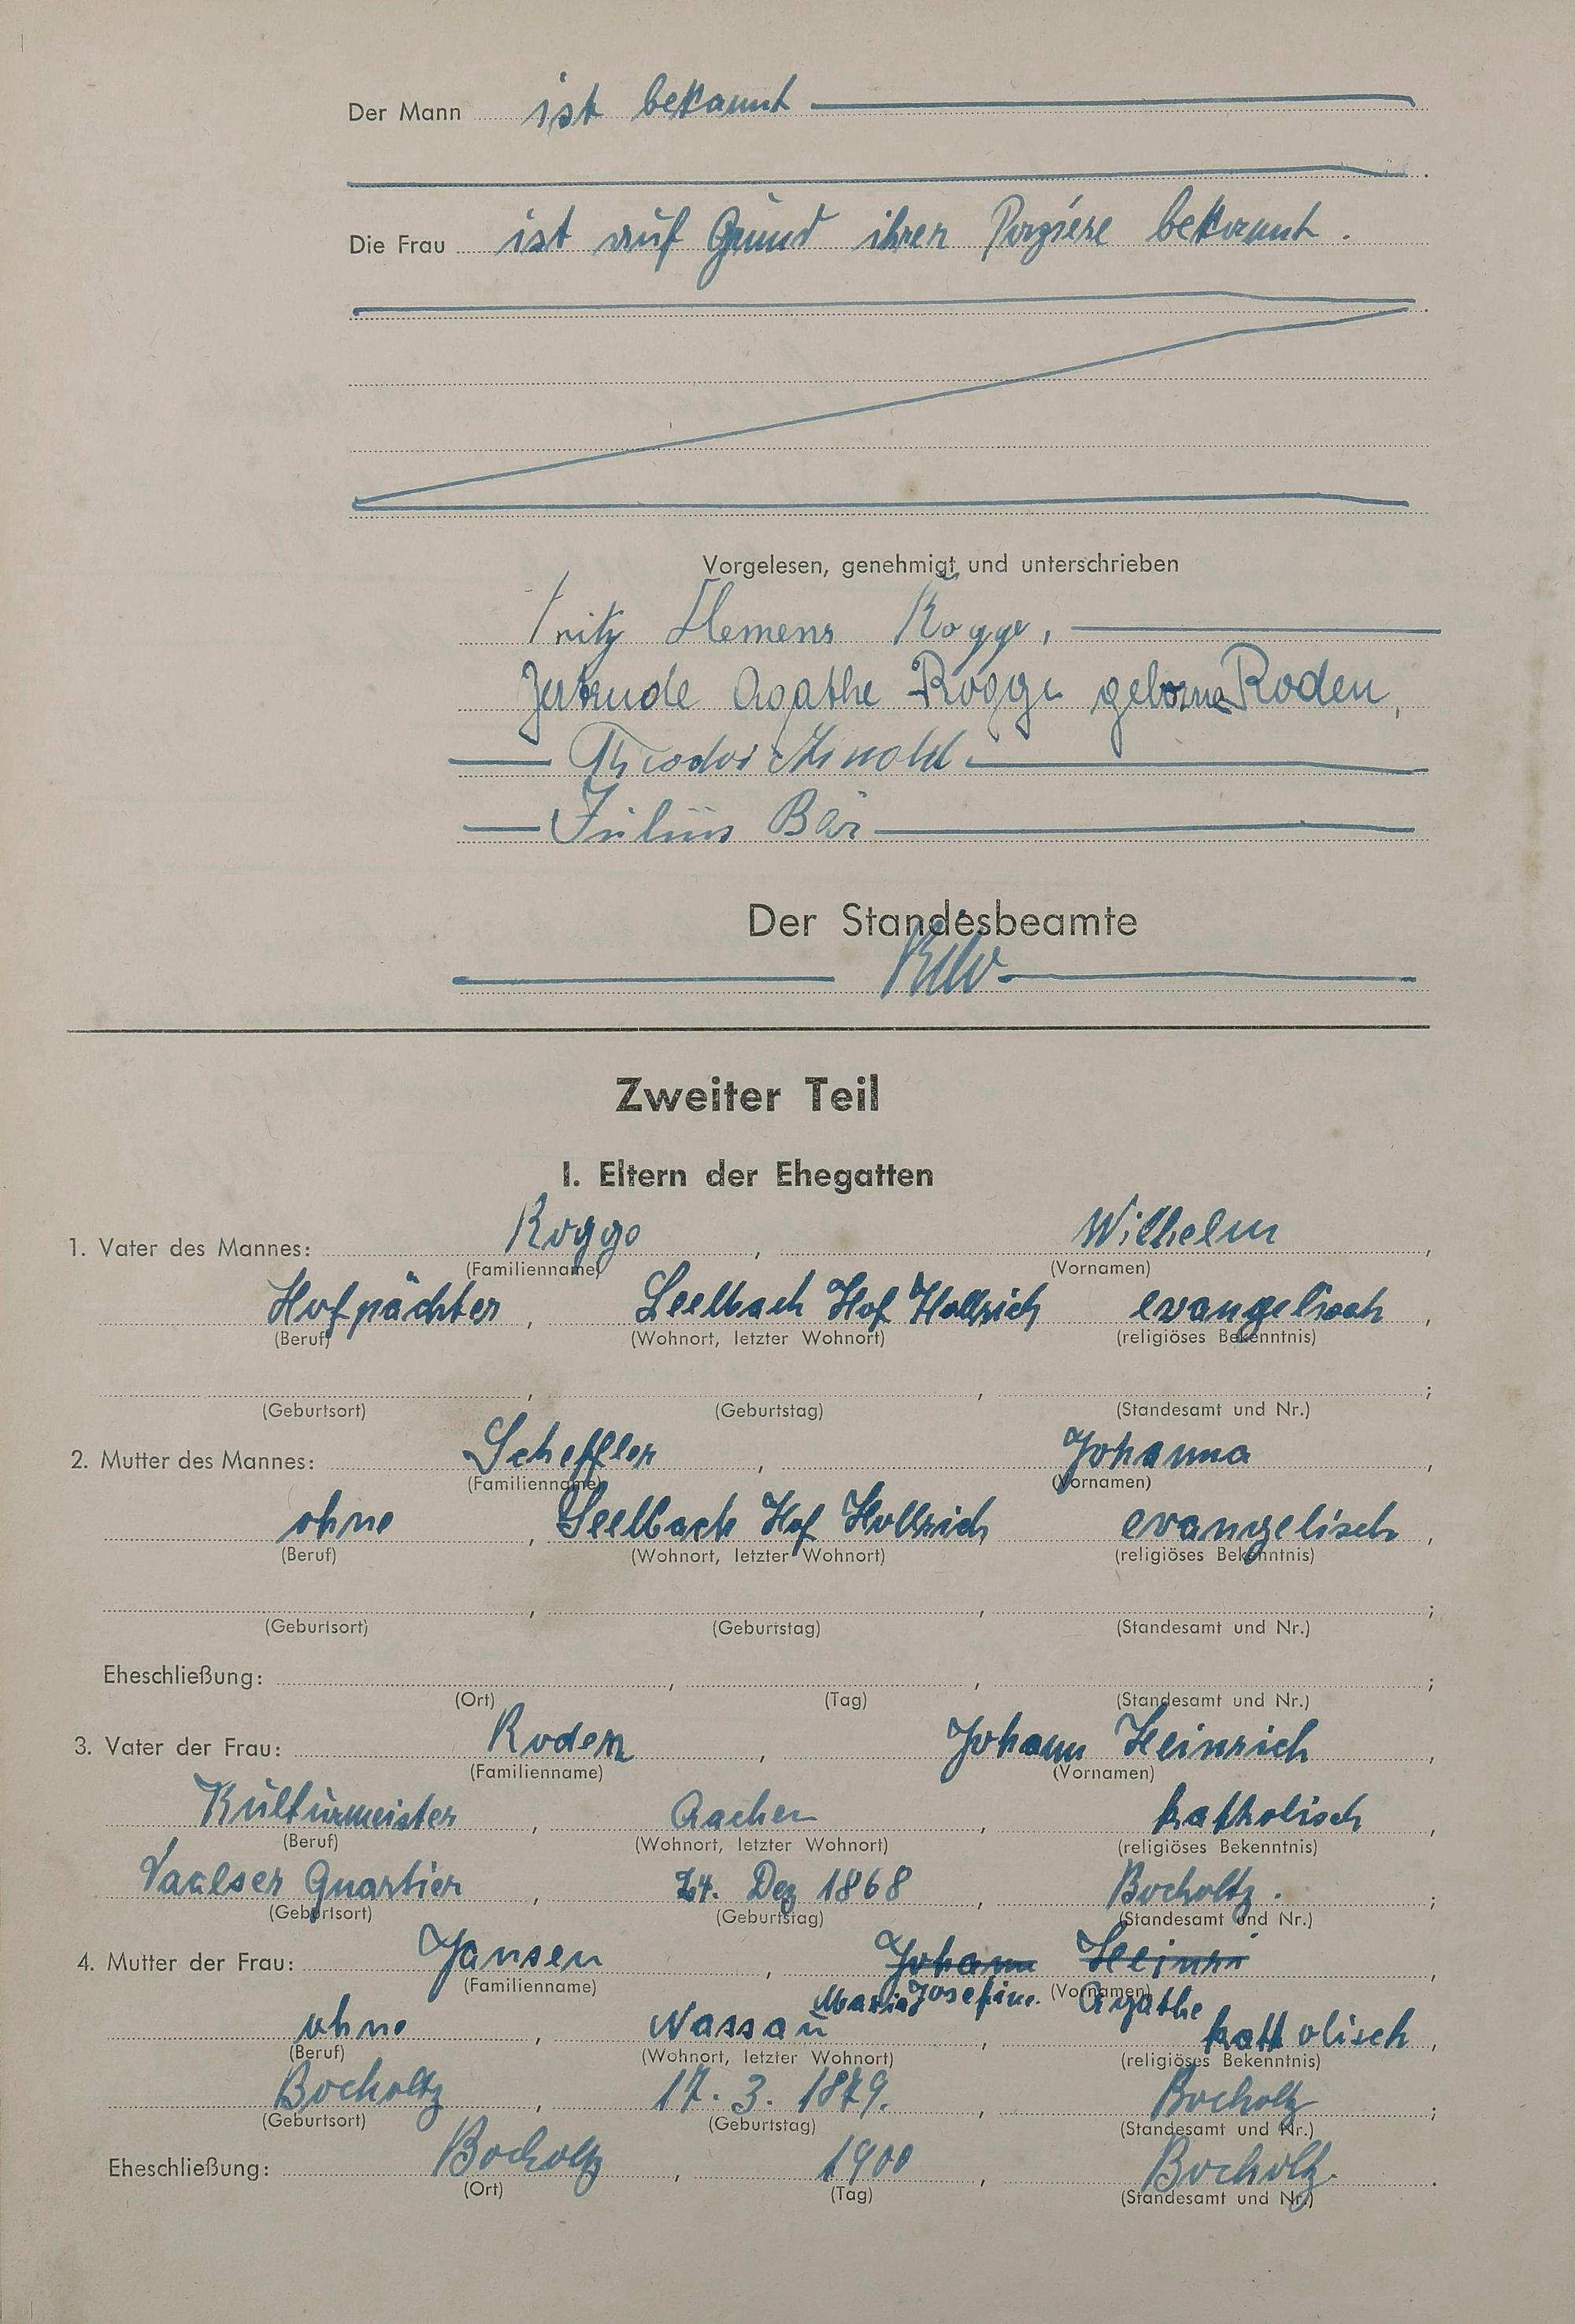 Der Mann ist bekannt
Die Frau ist auf Grund ihrer Papiere bekannt.
Vorgelesen, genehmigt und unterschrieben
Fritz Klemens Rogge,
Gertrude Agathe Rogge geborne Roden,
Theodor Arnold
Julius Bär
Der Standesbeamte
Zweiter Teil
I. Eltern der Ehegatten
1. Vater des Mannes: Rogge, Wilhelm,
(Familienname) (Vornamen)
Hofpächter, Seelbach Hof Hollrich evangelisch,
(Beruf) (Wohnort, letzter Wohnort) (religiöses Bekenntnis)
, , ;
(Geburtsort) (Geburtstag) (Standesamt und Nr.)
2. Mutter des Mannes: Scheffler, Johanna,
(Familienname) (Vornamen)
ohne, Seelbach Hof Hollrich evangelisch,
(Beruf) (Wohnort, letzter Wohnort) (religiöses Bekenntnis)
, , ;
(Geburtsort) (Geburtstag) (Standesamt und Nr.)
Eheschließung: , , ;
(Ort) (Tag) (Standesamt und Nr.)
3. Vater der Frau: Roden, Johann Heinrich,
(Familienname) (Vornamen)
Kulturmeister, Aachen, katholisch,
(Beruf) (Wohnort, letzter Wohnort) (religiöses Bekenntnis)
Vaalser Quartier, 24. Dez 1868, Bocholtz.;
(Geburtsort) (Geburtstag) (Standesamt und Nr.)
4. Mutter der Frau: Jansen, Johann Heinri,
(Familienname) (Vornamen)
Maria Josefine. Agathe
ohne, Nassau, katholisch,
(Beruf) (Wohnort, letzter Wohnort) (religiöses Bekenntnis)
Bocholtz, 17. 3. 1879., Bocholtz;
(Geburtsort) (Geburtstag) (Standesamt und Nr.)
Eheschließung: Bocholtz, 1900, Bocholtz.
(Ort) (Tag) (Standesamt und Nr.)